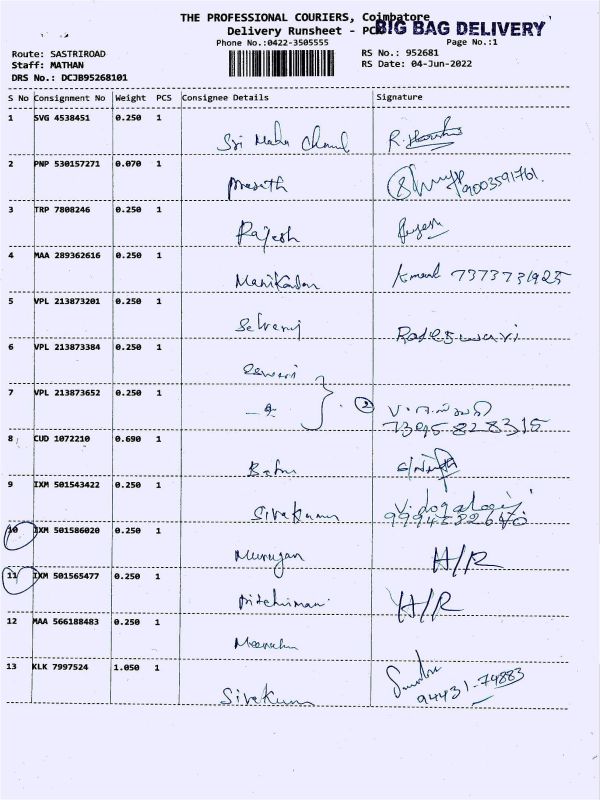 THE PROFESSIONAL COURIERS, Coimbatore
BIG BAG DELIVERY
Delivery Runsheet - PC
Phone No.:0422-3505555
Page No.:1
Route: SASTRIROAD
RS No.: 952681
Staff: MATHAN
RS Date: 04-Jun-2022
DRS No.: DCJB95268101
S No Consignment No Weight PCS Consignee Details Signature
1 SVG 4538451 0.250 1
Sri Maha
2 PNP 530157271 0.070 1
9003591761
3 TRP 7808246 0.250 1
Rajesh
4 MAA 289362616 0.250 1
Manikandan 7373731925
5 VPL 213873201 0.250 1
Selvaraj
6 VPL 213873384 0.250 1
Eswari
7 VPL 213873652 0.250 1
2
7395828315
8 CUD 1072210 0.690 1
9 IXM 501543422 0.250 1
Sivakumar
10 IXM 501586020 0.250 1
Murugan H/R
11 IXM 501565477 0.250 1
H/R
12 MAA 566188483 0.250 1
13 KLK 7997524 1.050 1
Sivakumar 94431-74883